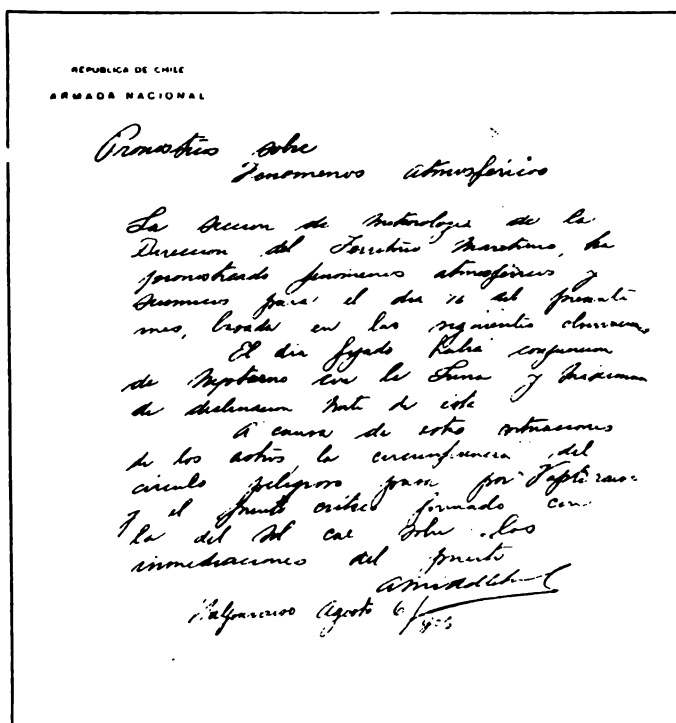 REPUBLICA DE CHILE
ARMADA NACIONAL
Pronosticos sobre
Fenomenos atmosféricos
La seccion de meteorologia de la
Direccion del Territorio Maritimo, ha
pronosticado fenómenos atmosféricos y
sismicos para el dia 16 del presente
mes, basada en las siguientes
El dia fijado habrá conjuncion
de Neptuno con la Luna y máxima
de declinacion Norte de esta
A causa de estas situaciones
de los astros, la circunferencia del
circulo peligroso pasa por Valparaiso
y el punto critico formado con
la del Sol cae sobre las
inmediaciones del puerto
Valparaiso Agosto 6/